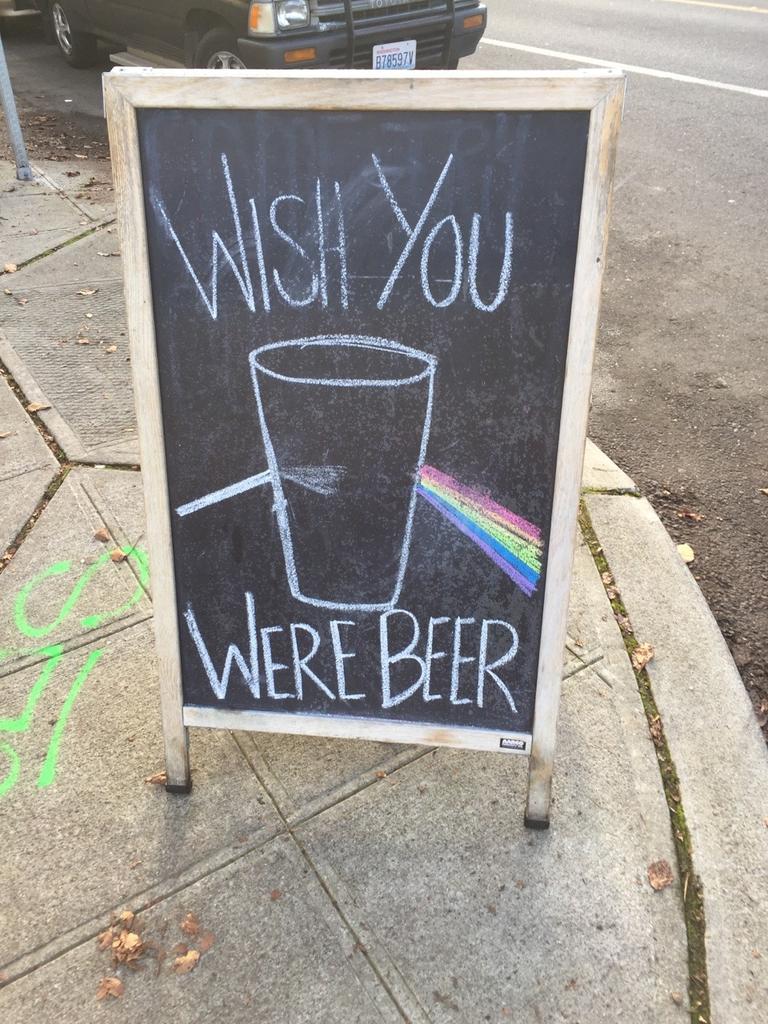 WASHINGTON
B78597V
WISH YOU
WERE BEER